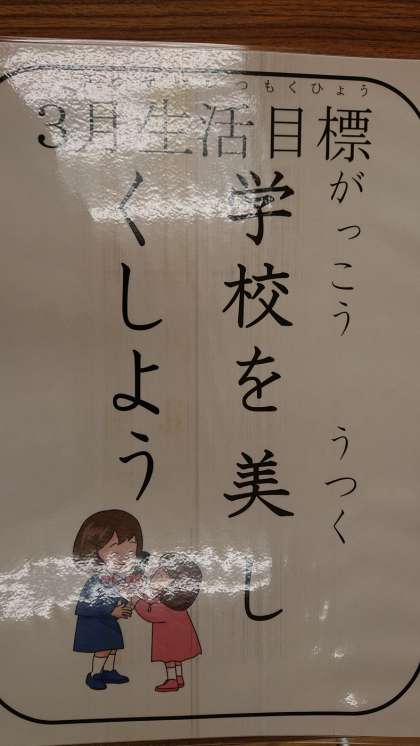 つもくひょう
3月生活目標
がっこう　うつく
学校を美し
くしよう